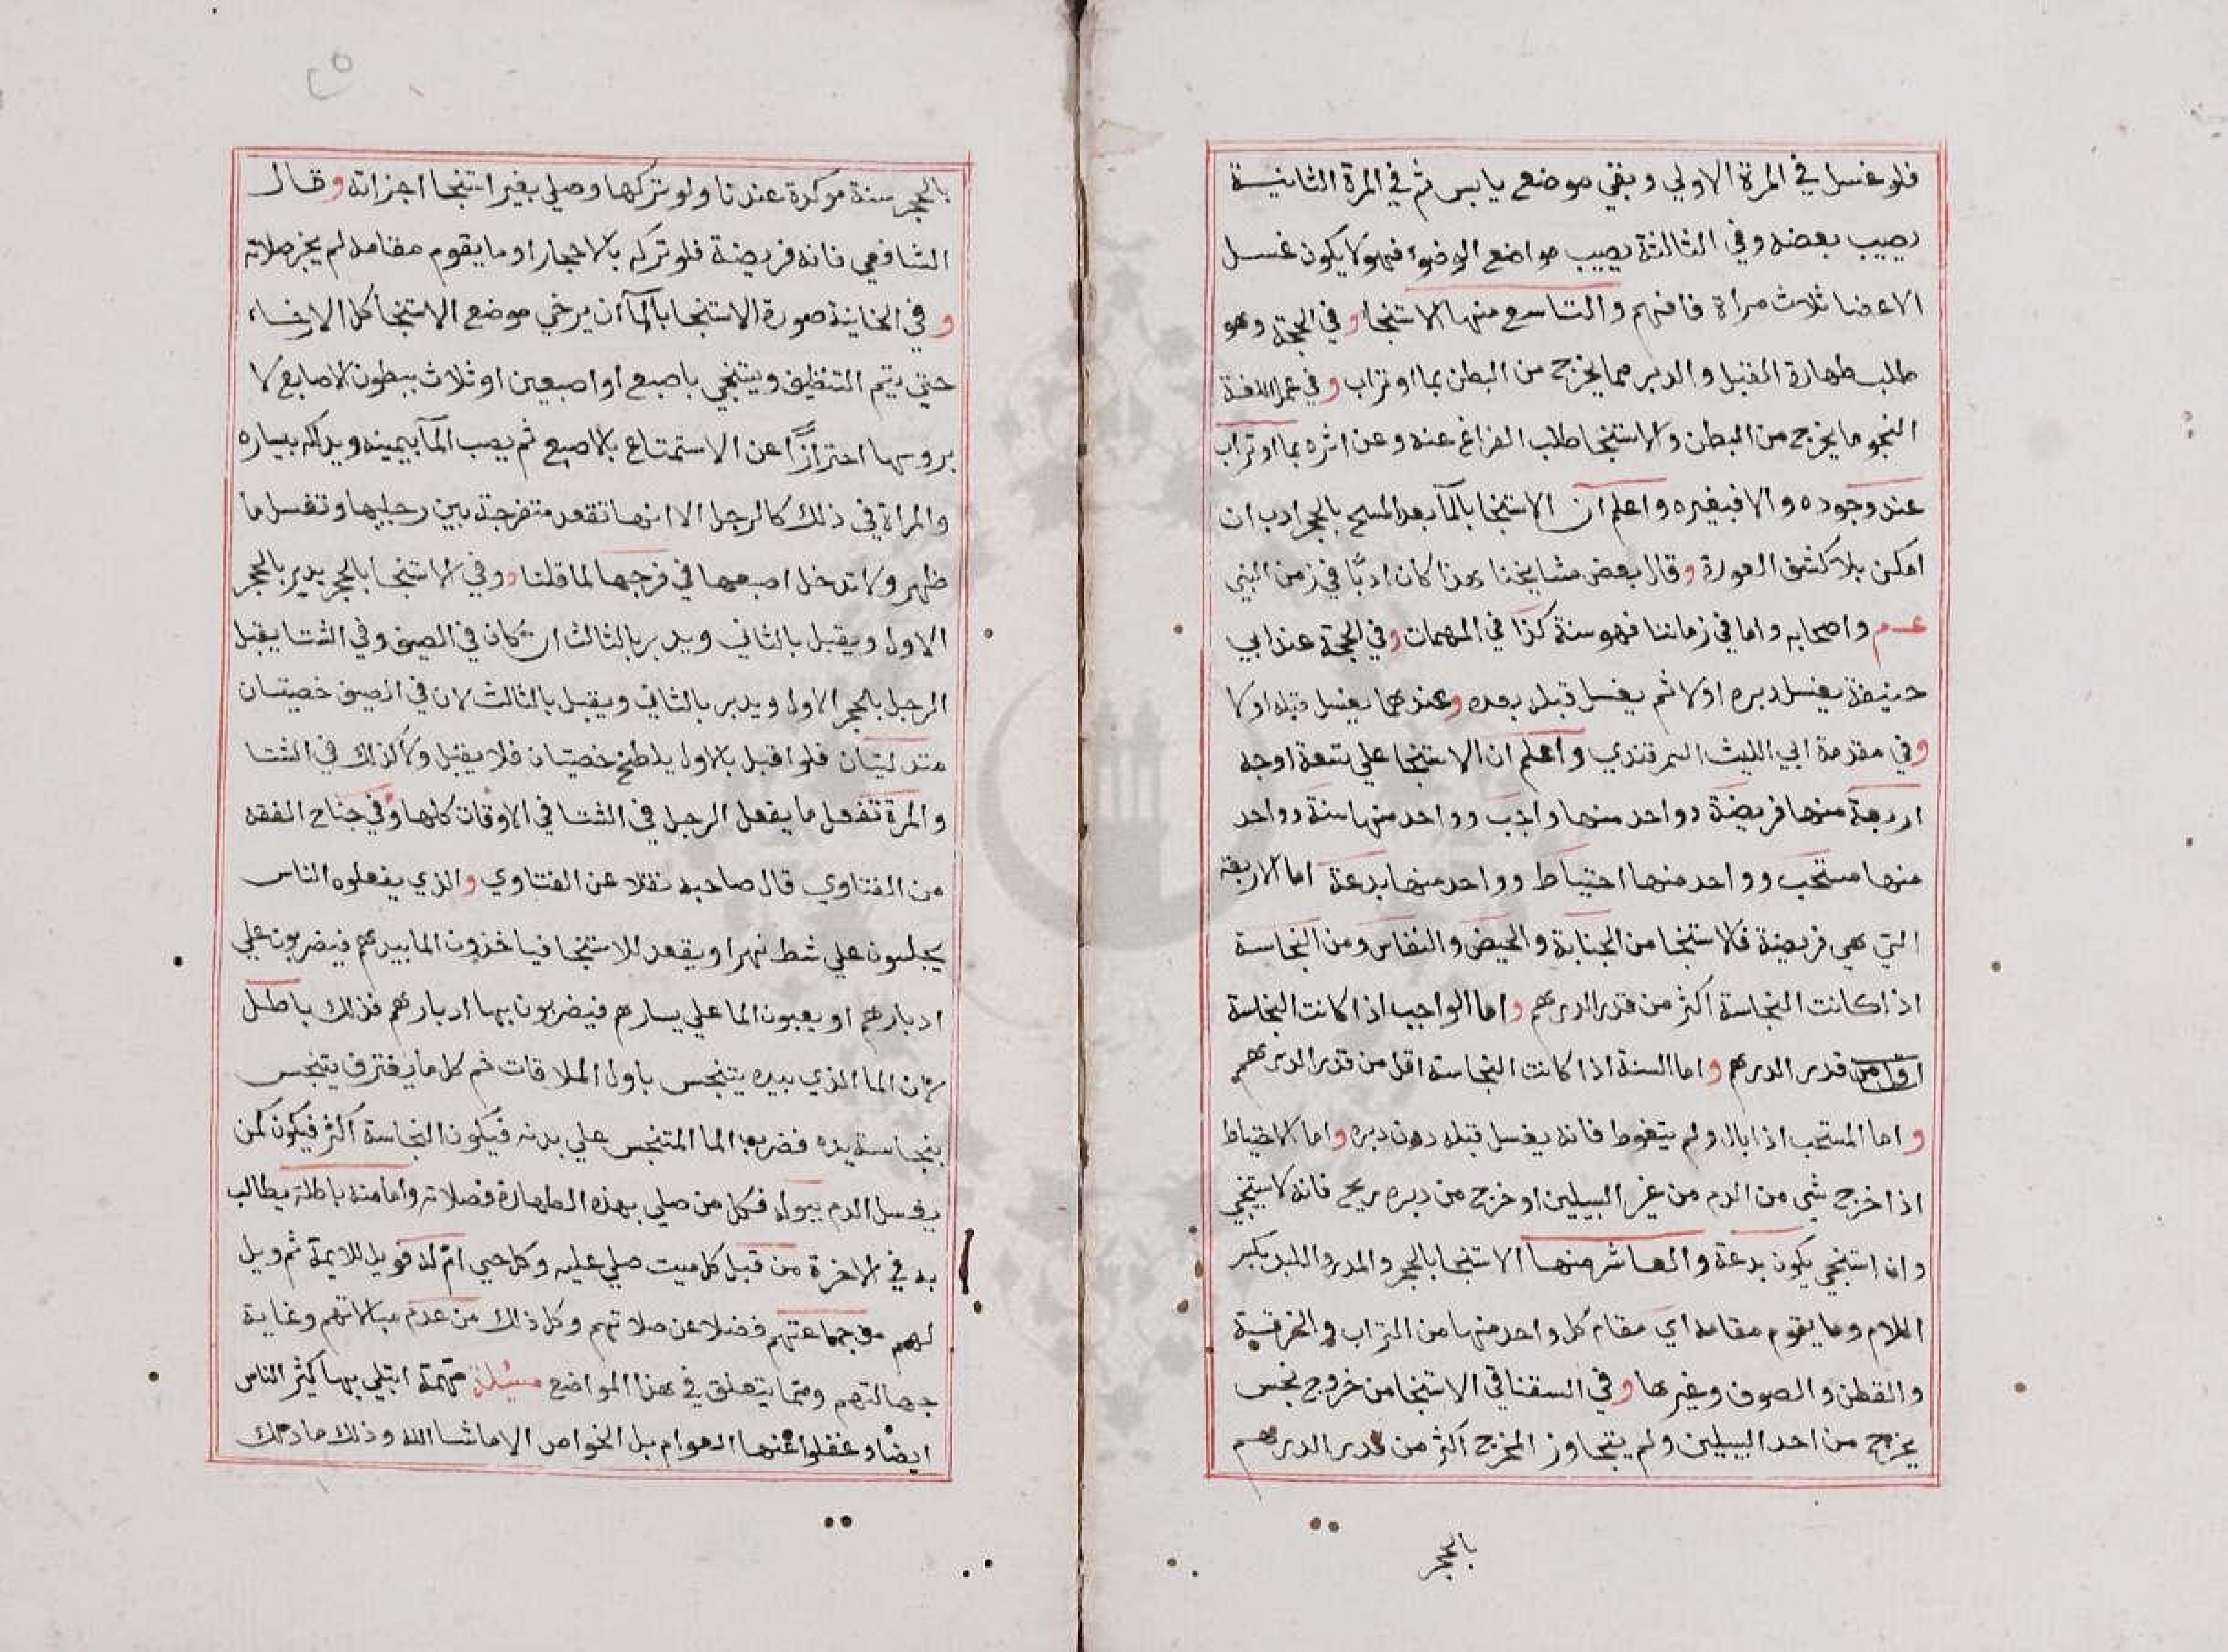 فلو غسل في المرة الاولي وبقي موضع يابس ثم في المرة الثانية
يصيب بعضه وفي الثالثة يصيب مواضع الوضوء فهو لا يكون غسل
الاعضا ثلاث مراة فافهم والتاسع منها الاستنجا وفي الحجة وهو
طلب طهارة القبل والدبر مما يخرج من البطن بما او تراب وفي
النجو ما يخرج من البطن والاستنجا طلب الفراغ عنه وعن اثره بما او تراب
عند وجوده والا فبغيره واعلم ان الاستنجا بالمآ بعد المسح بالحجر ادب ان
امكن بلا كشف العورة وقال بعض مشايخنا هذا كان ادبًا في زمن النبي
عـم واصحابه واما في زماننا فهو سنة كذا في المهمات وفي الحجة عند ابي
حنيفة يغسل دبره اولا ثم يغسل قبله بعده وعندهما يغسل قبله اولا
وفي مقدمة ابي الليث السمرقندي واعلم ان الاستنجا علي تسعة اوجه
اربعة منها فريضة وواحد منها واجب وواحد منها سنة وواحد
منها مستحب وواحد منها احتياط وواحد منها بدعة اما الاربعة
التي هي فريضة فالاستنجا من الجنابة والحيض والنفاس ومن النجاسة
اذا كانت النجاسة اكثر من قدر الدرهم واما الواجب اذا كانت النجاسة
قدر الدرهم واما السنة اذا كانت النجاسة اقل من قدر الدرهم
واما المستحب اذا بال ولم يتغوط فانه يغسل قبله دون دبره واما الاحتياط
اذا خرج شي من الدم من غير السبيلين او خرج من دبره ريح فانه لا يستنجي
وان استنجي يكون بدعة والعاشر منها الاستنجا بالحجر والمدر واللبد بكسر
اللام وما يقوم مقامه اي مقام كل واحد منها من التراب والخرقة
والقطن والصوف وغيرها وفي السقناقي الاستنجا من خروج نجس
يخرج من احد السبيلين ولم يتجاوز المخرج اكثر من قدر الدرهم
بالحجر
٢٥
بالحجر سنة موكدة عندنا ولو تركها وصلي بغير استنجا اجزاته وقال
الشافعي فانه فريضة فلو تركه بالاحجار او ما يقوم مقامه لم يجز صلاته
وفي الخانية صورة الاستنجا بالمآ ان يرخي موضع الاستنجا كل الارخاء
حتي يتم التنظيف ويستنجي باصبع او اصبعين او ثلاث ببطون الاصابع لا
بروسها احترازًا عن الاستمتاع بالاصبع ثم يصب المآ بيمينه ويدلكه بيساره
والمراة في ذلك كالرجل الا انها تقعد متفرجة بين رجليها وتغسل ما
ظهر ولا تدخل اصبعها في فرجها لما قلنا وفي الاستنجا بالحجر يدبر بالحجر
الاول ويقبل بالثاني ويدبر بالثالث ان كان في الصيف وفي الشتا يقبل
الرجل بالحجر الاول ويدبر بالثاني ويقبل بالثالث لان في الصيف خصيتان
متدليتان فلو اقبل بالاول يلطخ خصيتان فلا يقبل ولا كذلك في الشتا
والمرة تفعل ما يفعل الرجل في الشتا في الاوقات كلها وفي جناح الفقه
من الفتاوي قال صاحبه نقلا عن الفتاوي والذي يفعلوه الناس
يجلسون علي شط نهر او يقعد للاستنجا فياخذون الما بيدهم فيضربون علي
ادبارهم او يصبون الما علي يسارهم فيضربون بها ادبارهم فذلك باطل
لان الما الذي بيده يتنجس باول الملاقات ثم كل ما يغترف يتنجس
بنجاسة يده فضرب الما المتنجس علي بدنه فيكون النجاسة اكثر فيكون كمن
يغسل الدم ببول فكل من صلي بهذه الطهارة فصلاته وامامته باطلة يطالب
به في الاخرة من قبل كل ميت صلي عليه وكل حي ام له فويل للايمة ثم ويل
لهم من جماعتهم فضلا عن صلاتهم وكل ذلك من عدم مبالاتهم وغاية
جهالتهم ومما يتعلق في هذا المواضع مسيلة مهمة ابتلي بها كثير الناس
ايضا وغفلوا عنها العوام بل الخواص الا ما شا الله وذلك ما